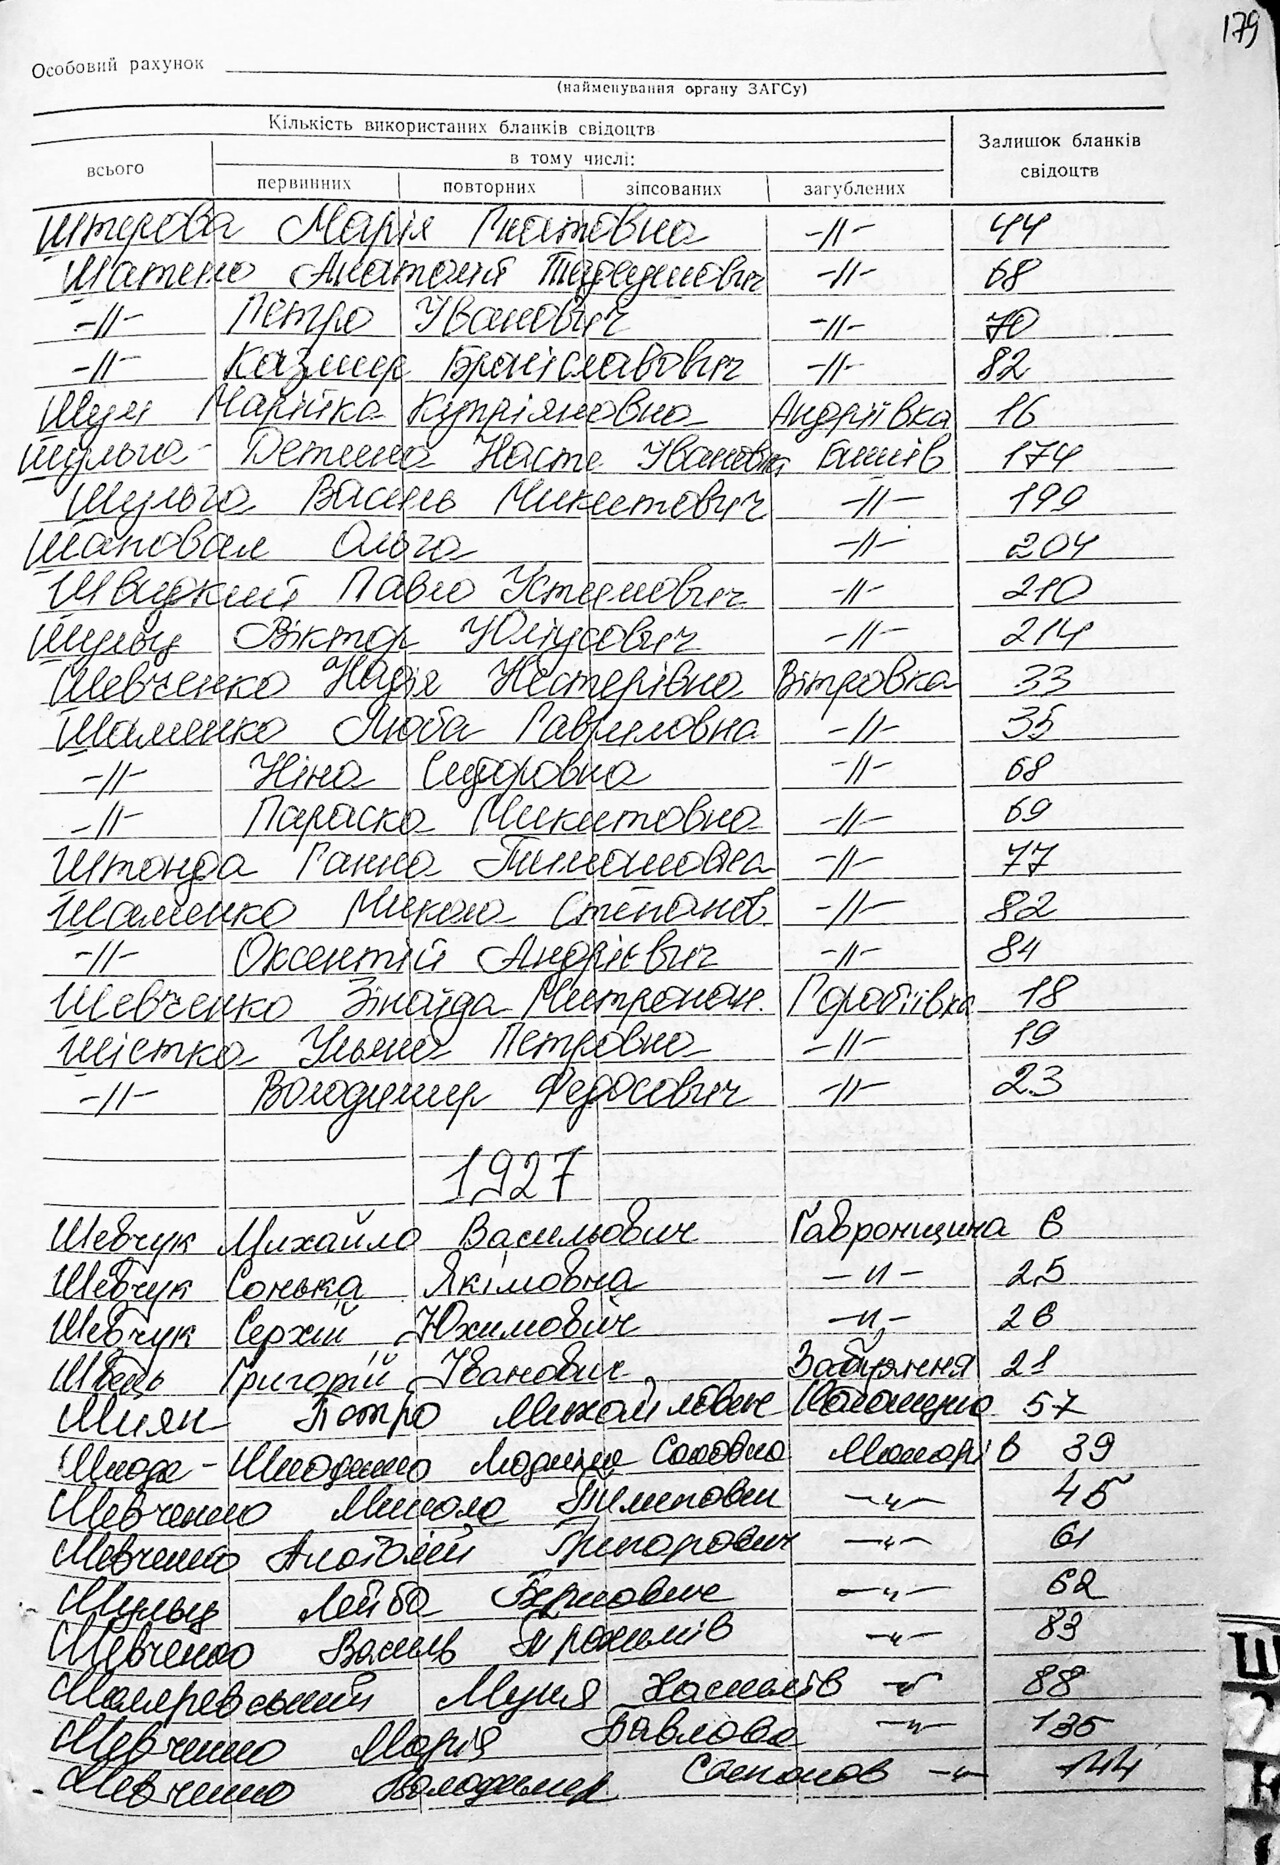 179
Особовий рахунок
(найменування органу ЗАГСу)
Кількість використаних бланків свідоцтв
Залишок бланків свідоцтв
всього
в тому числі:
первинних повторних зіпсованих загублених
Штерова Марія Гнатовна -//- 44
Шатило Анатолій -//- 68
-//- Петро Уванович -//- 70
-//- Казмир Броніславович -//- 82
Шум Марійка Купріяновна Андріївка 16
Шульга - Насте Увановна 174
Шульга Василь Микитович -//- 199
Шаповал Ольга -//- 204
Швидкий Павло Устимович -//- 210
Шульц Віктор Юліусович -//- 214
Шевченко Надія Нестерівна Вітровка 33
Шаменко Люба Гавриловна -//- 35
-//- Ніна Сидоровна -//- 68
-//- Параска Микитовна -//- 69
Штонда Ганна Тимошовна -//- 77
Шаменко Микола Степанов. -//- 82
-//- Оксентій Андрієвич -//- 84
Шевченко Зінаїда Митрофан. Горобіївка 18
Шістка Уляна Петровна -//- 19
-//- Володимир Федосович -//- 23
1927
Шевчук Михайло Васильович Гавронщина 6
Шевчук Сонька Якімовна -"- 25
Шевчук Серхій Юхимовіч -"- 26
Швець Григорій Іванович Забуяння 21
Шиян Петро Михайлович 57
Соловна Макарів 39
Шевченко Микола Пилипович -"- 45
Шевченко Анатолій Григорович -"- 61
Шульц Лейба Берковich -"- 62
Шевченко Василь Трохимів -"- 83
Муня Хаскелів -"- 88
Шевченко Марія Павлова -"- 135
Шевченко Володимер Степанов -"- 144
Ш